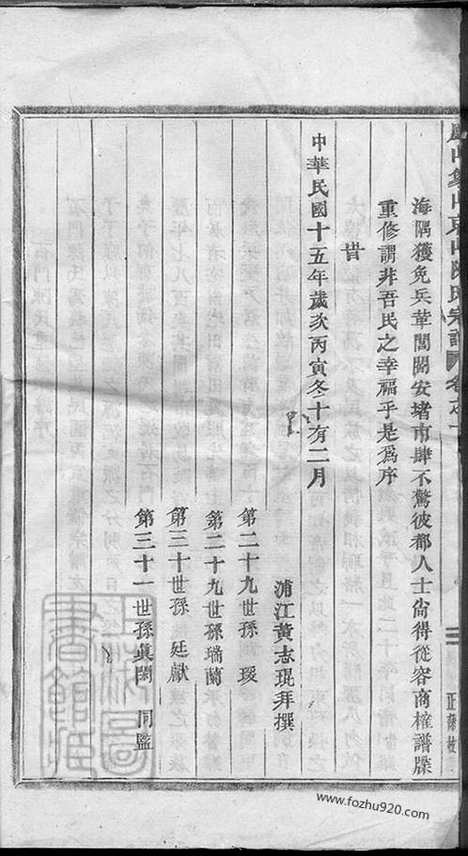 海隅獲免兵革閭閻安堵市肆不驚彼都人士尙得從容商榷譜牒
重修謂非吾民之幸福乎是爲序
昔
中華民國十五年歲次丙寅冬十有二月
浦江黃志琨拜撰
第二十九世孫 瑗
第二十九世孫瑞蘭
第三十世孫 廷獻
第三十一世孫集閑 同監
www.fozhu920.com